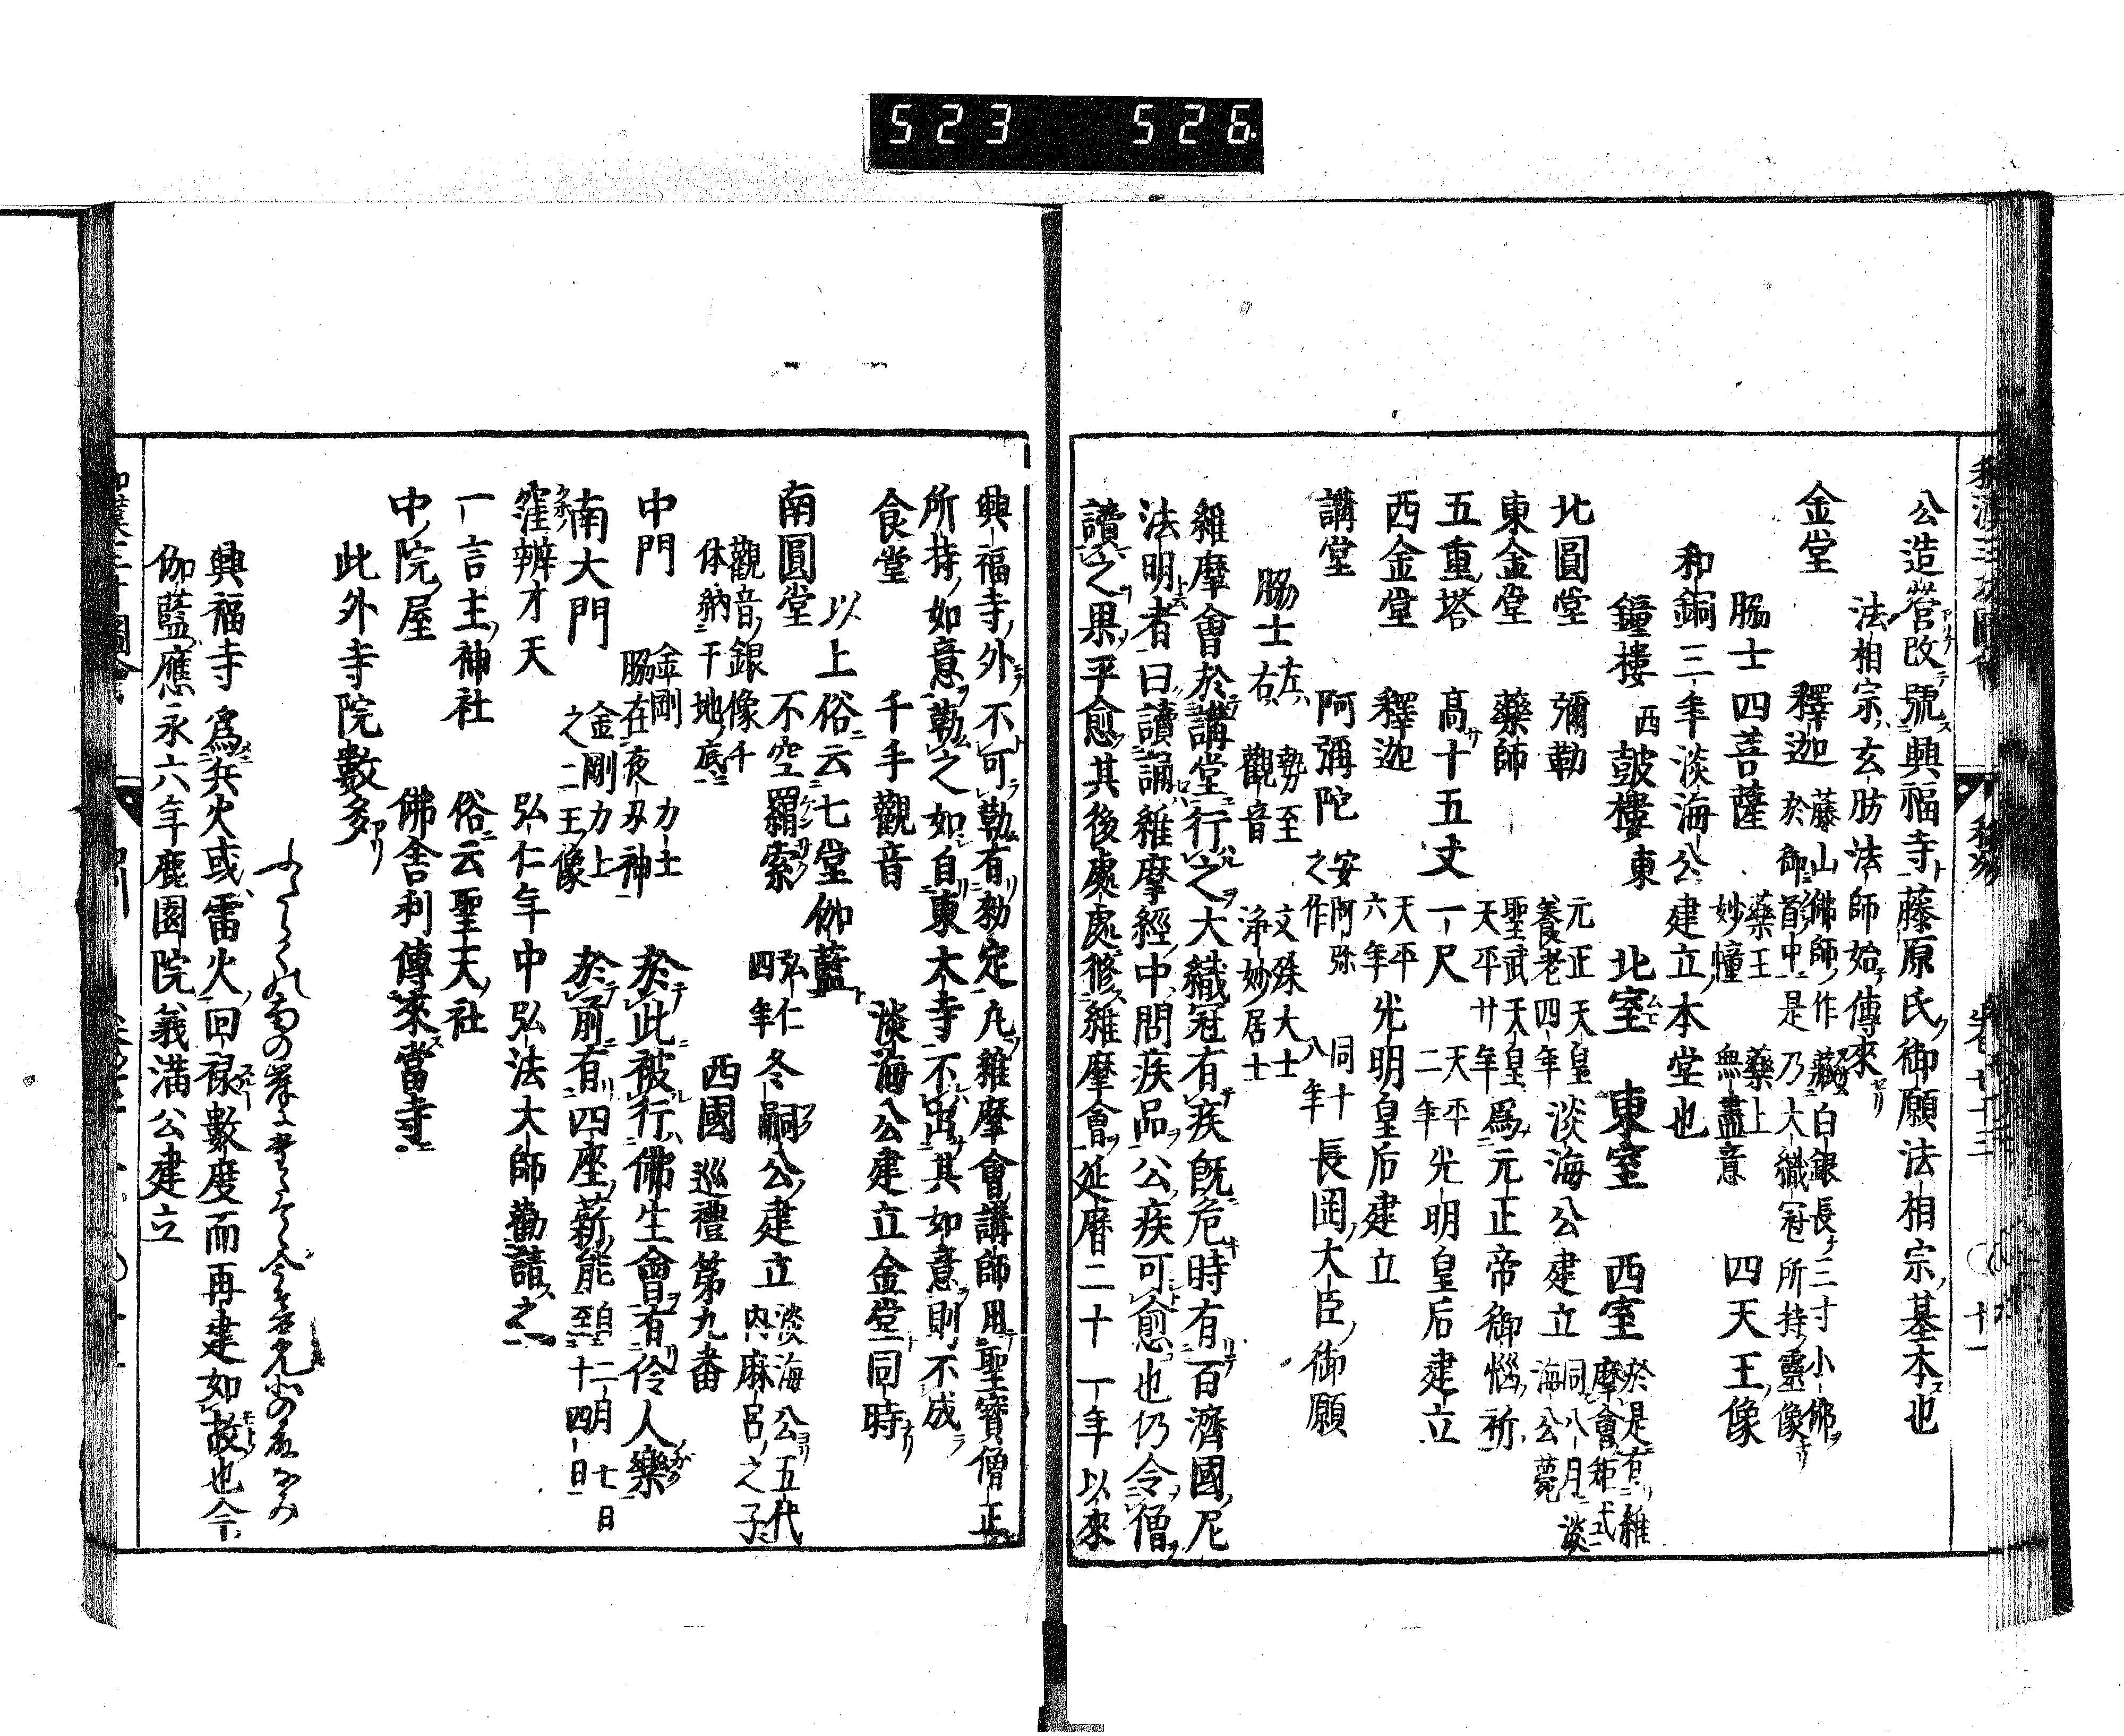 523 526
公造營改號興福寺藤原氏御願法相宗基本也
法相宗玄肪法師始傳來
金堂 釋迦 藤山佛師作 藏白銀長三寸小佛
於御首中是乃大織冠所持靈像
脇士四菩薩 藥王 藥上 四天王像
妙幢 無盡意
和銅三年淡海公建立本堂也
鐘樓西 鼓樓東 北室 東室 西室 於是有維
摩會矩式
北圓堂 彌勒 元正天皇 淡海公建立 同八月淡
養老四年 海公薨
東金堂 藥師 聖武天皇爲元正帝御惱祈
天平廿年
五重塔 高十五丈一尺 天平二年光明皇后建立
西金堂 釋迦 天平六年光明皇后建立
講堂 阿彌陀 安阿弥之作 同十八年 長岡大臣御願
脇士 左勢至 文殊大士
右觀音 淨妙居士
維摩會於講堂行之大織冠有疾既危時有百濟國尼
法明者曰讀誦維摩經中問疾品公疾可愈也仍令僧
讀之果平愈其後處處修維摩會延曆二十一年以來
興福寺外不可勤有勅定凡維摩會講師用聖寶僧正
所持如意勤之如自東大寺不出其如意則不成
食堂 千手觀音 淡海公建立金堂同時
以上俗云七堂伽藍
南圓堂 不空羂索 弘仁四年 冬嗣公建立 淡海公五代
內麻呂之子
觀音銀像千 西國巡禮第九番
体納于地底
中門 金剛力士 於此被行佛生會有伶人樂
脇在夜刄神
南大門 金剛力士 於前有四座薪能 自二月七日
之二王像 至十四日
窪辨才天 弘仁年中弘法大師勸請之
一言主神社 俗云聖天社
中院屋 佛舎利傳來當寺
此外寺院數多
興福寺爲兵火或雷火回祿數度而再建如故也今
伽藍應永六年鹿園院義満公建立